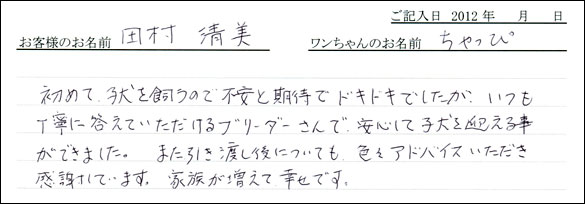 ご記入日 2012 年 月 日
お客様のお名前 田村 清美 ワンちゃんのお名前 ちゃっぴ
初めて、子犬を飼うので不安と期待でドキドキでしたが、いつも
丁寧に答えていただけるブリーダーさんで、安心して子犬を迎える事
ができました。 また引き渡し後についても、色々アドバイスいただき
感謝しています。家族が増えて、幸せです。